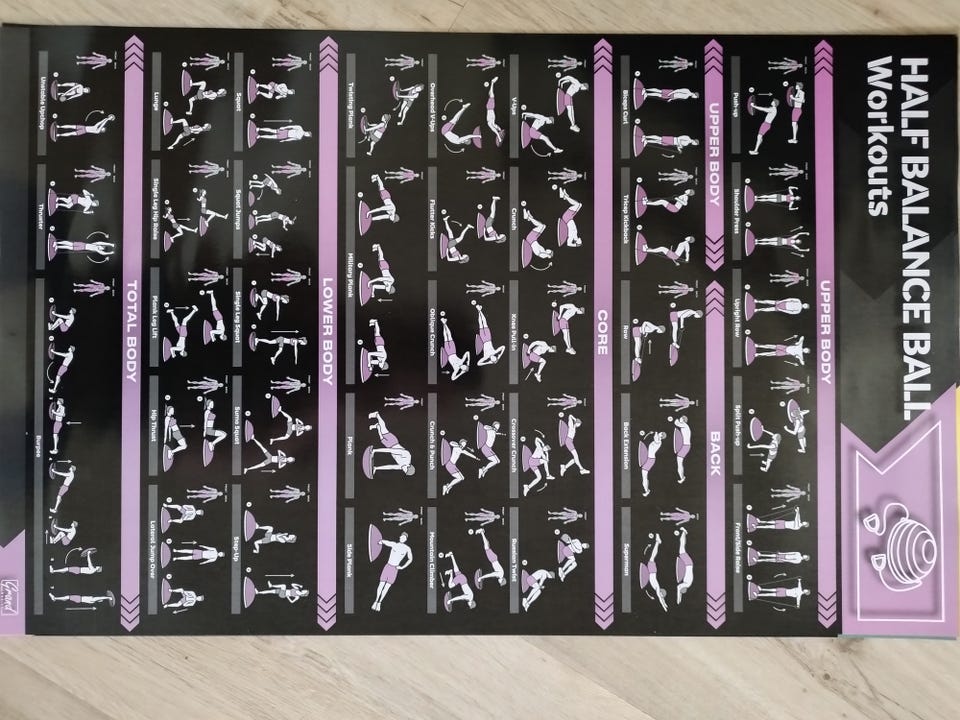 HALF BALANCE BALL
Workouts
UPPER BODY
Push-up
Shoulder Press
Upright Row
Split Push-up
Front/Side Raise
UPPER BODY
BACK
Biceps Curl
Tricep Kickback
Row
Back Extension
Superman
CORE
V-Ups
Crunch
Knee Pull-in
Crossover Crunch
Russian Twist
Overhead V-Ups
Flutter Kicks
Oblique Crunch
Crunch & Punch
Mountain Climber
Twisting Plank
Military Plank
Plank
Side Plank
LOWER BODY
Squat
Squat Jumps
Single Leg Squat
Sumo Squat
Step-Up
Lunge
Single Leg Hip Raise
Plank Leg Lift
Hip Thrust
Lateral Jump Over
TOTAL BODY
Unstable Upchop
Thruster
Burpee
Grand